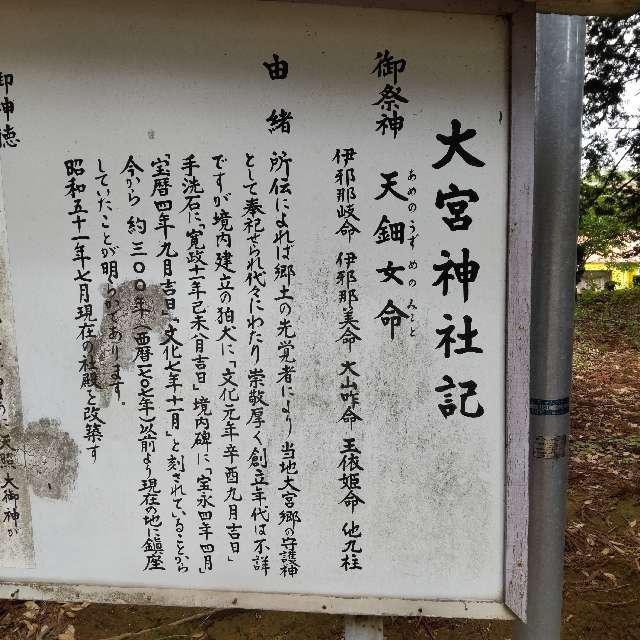 大宮神社記
御祭神 天鈿女命
あめのうずめのみこと
伊邪那岐命 伊邪那美命 大山咋命 玉依姫命 他九柱
由緒 所伝によれば郷土の先覚者により当地大宮郷の守護神
として奉祀され代々にわたり崇敬厚く創立年代は不詳
ですが境内建立の狛犬に、「文化元年辛酉九月吉日」
手洗石に、「寛政十一年己未八月吉日」境内碑に「宝永四年四月」
「宝暦四年九月吉日」「文化七年十一月」と刻されていることから
今から約三〇〇年(西暦一七〇七年)以前より現在の地に鎮座
していたことが明らかであります。
昭和五十一年七月現在の社殿を改築す
御神徳
天照大御神が